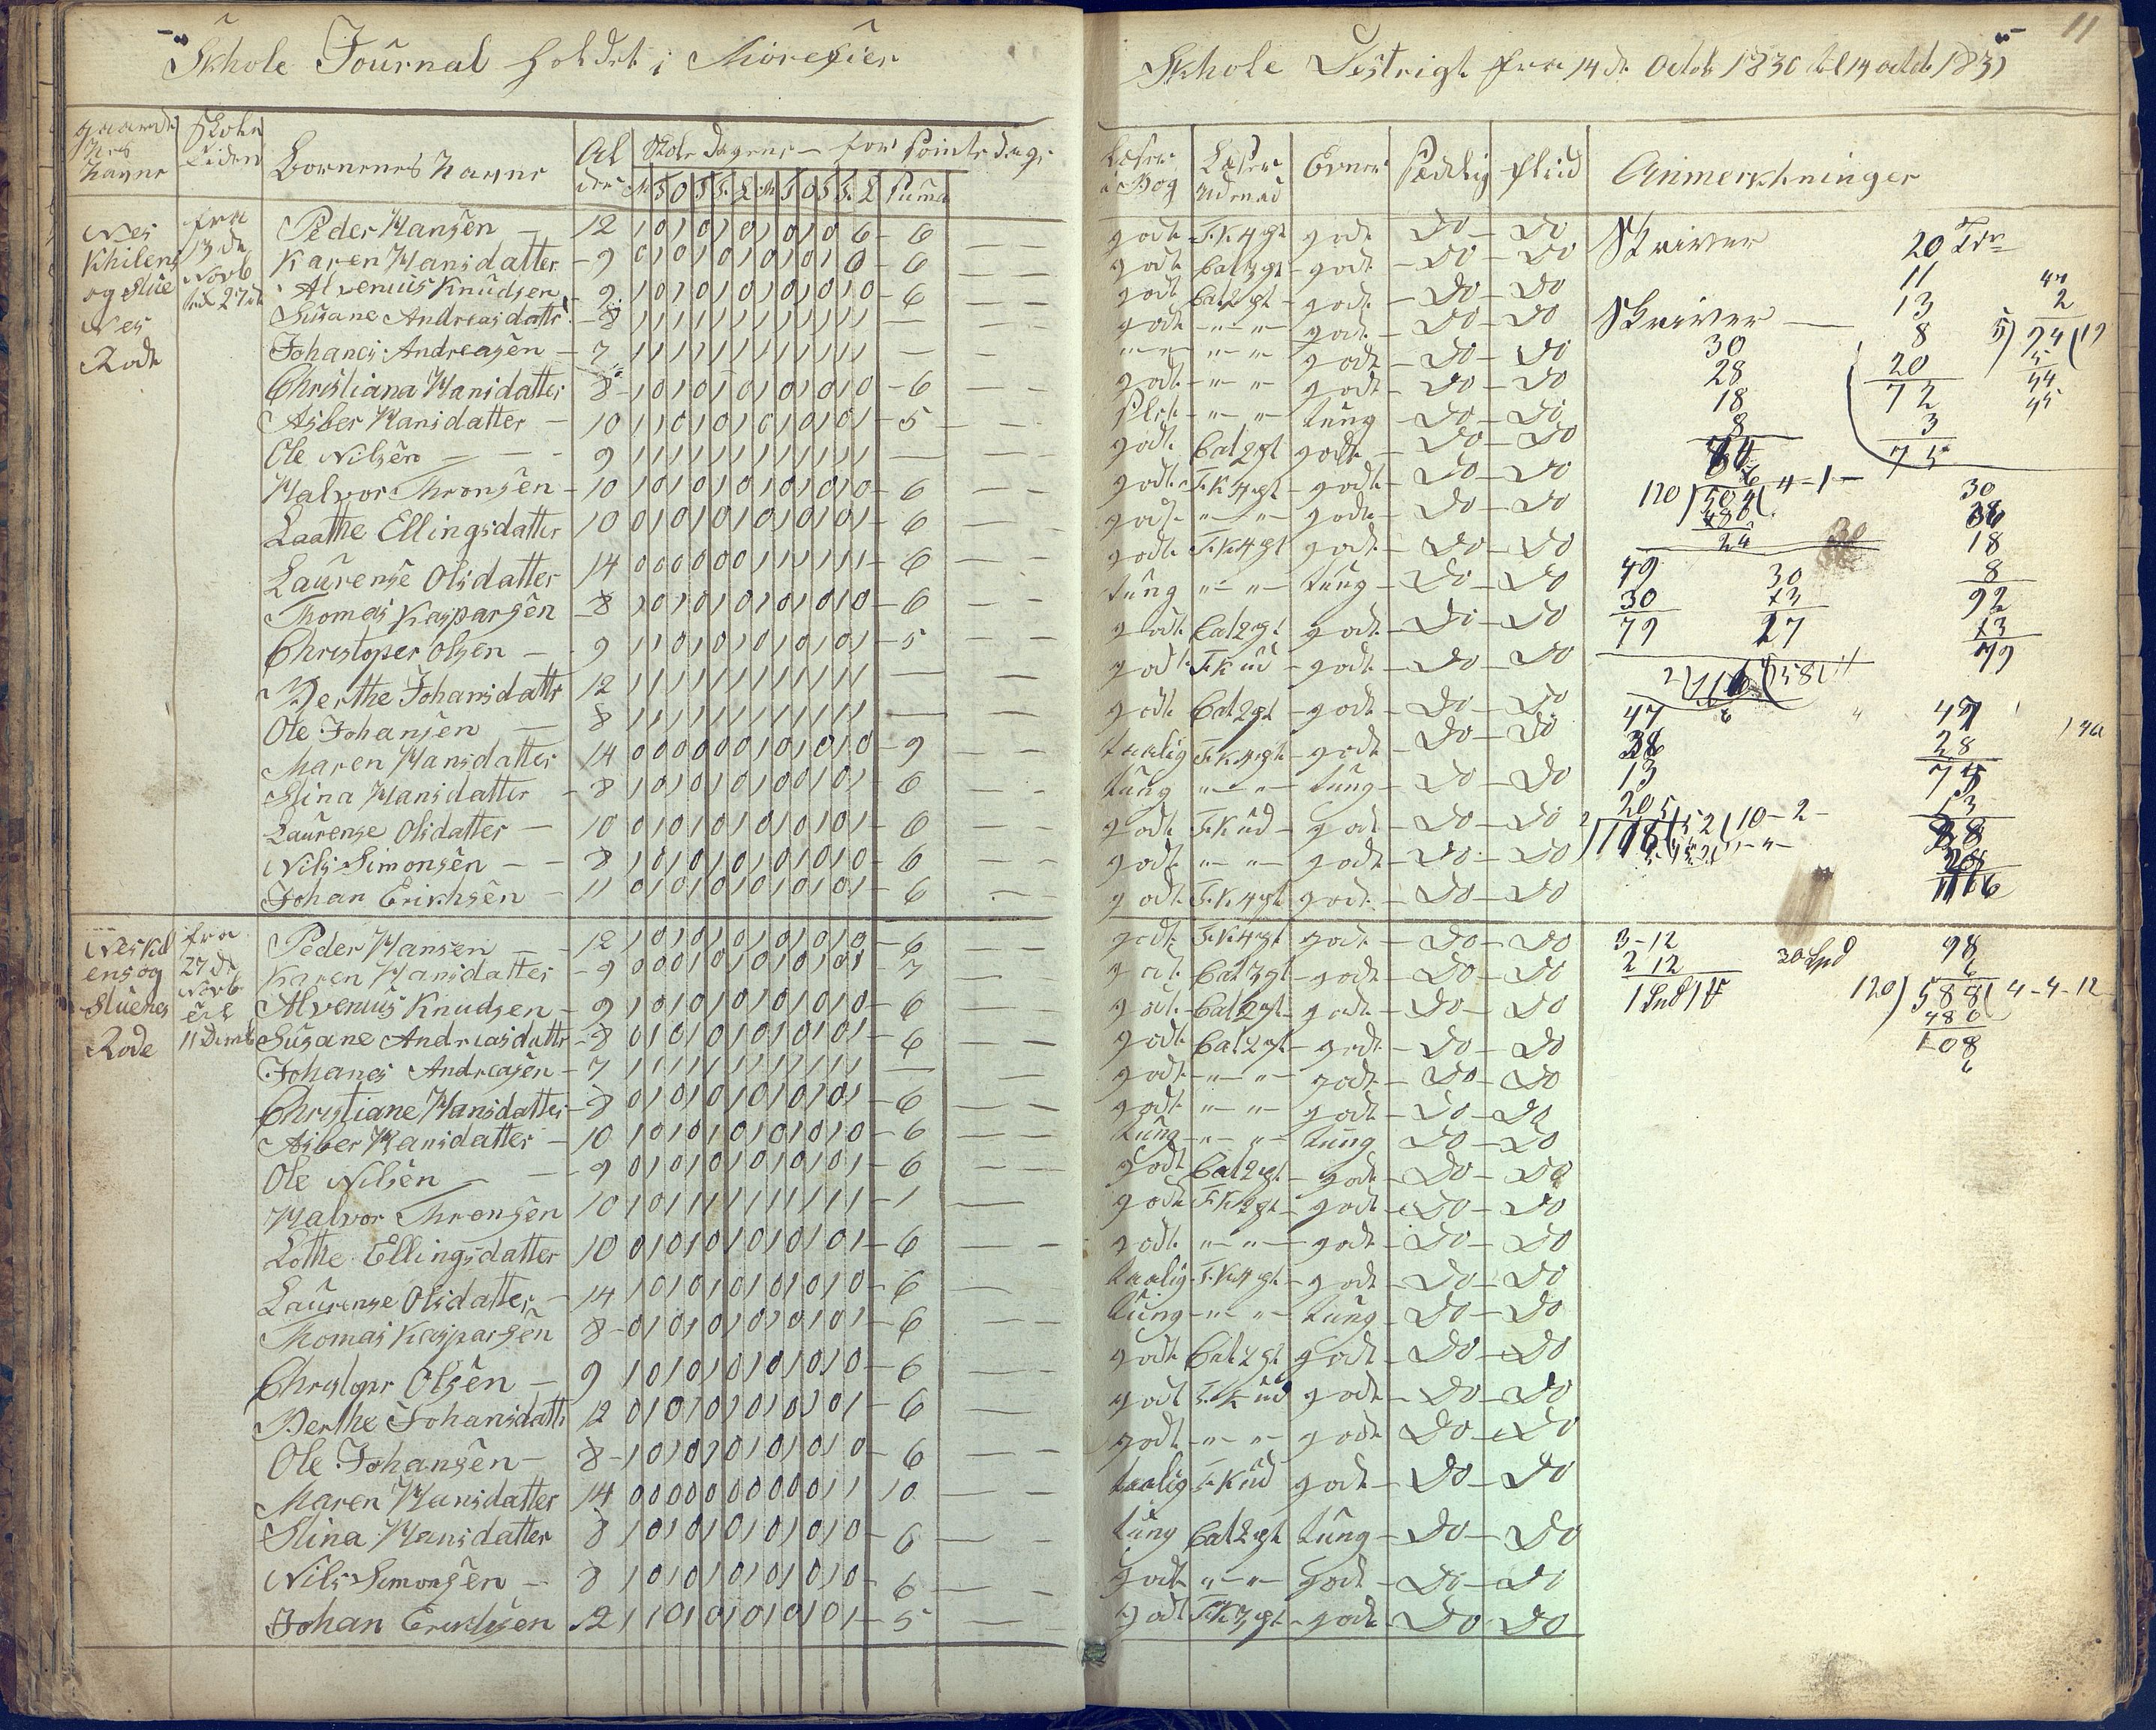 Skhole Journal holdet i Morefier
Skhole Destrigt fra 14 de Octob 1830 til 14 octob 1831
11
gaarde
nes
Nayne
Skole
tiden
Bornenes Nayne
Al
der
Skole Dagene — for Sointe dage
M S O S F. L M S O S F. L Suma
Læser
i Bog
Læser
Udenad
Evner
Sædlig
flied
Anmerkhninger
Nes
Khilens
og Slue
Nes
Rode
fra
13 de
Novb
til 27 de
Peder Hansen — 12 1 0 1 0 1 0 1 0 1 0 6 — 6 godt F. K 4 pt godt Do — Do Skriver
Karen Hansdatter — 9 0 1 0 1 0 1 0 1 0 1 6 — 6 godt Cat 3 pt — godt — Do — Do
Alvenius Knudsen — 9 1 0 1 0 1 0 1 0 1 0 1 0 — 6 godt Cat 2 pt — godt — Do — Do
Susane Andreasdattr — 8 1 1 1 1 1 1 1 1 1 1 1 1 — godt — " — " — godt — Do — Do Skriver —
Johanes Andreasen — 7 1 1 1 1 1 1 1 1 1 1 1 1 — " — " — " — godt — Do — Do
Christiana Hansdatter 8 — 1 0 1 0 1 0 1 0 1 0 1 0 — 6 godt — " — " godt — Do — Do
Asber Hansdatter — 10 1 1 0 1 0 1 0 1 0 1 0 1 — 5 Slet — " — " tung — Do — Do
Ole Nilsen — — — 9 1 1 1 1 1 1 1 1 1 1 1 1 — godt Cat 2 pt godt — Do — Do
Halvor Thronsen — 10 1 0 1 0 1 0 1 0 1 0 1 0 — 6 godt F. K 3 pt — godt — Do — Do
Laathe Ellingsdatter 10 0 1 0 1 0 1 0 1 0 1 0 1 — 6 godt — " — " — godt — Do — Do
Laurense Olsdatter 14 0 0 0 0 0 0 1 1 1 1 1 1 — 6 godt F. K 4 pt godt — Do — Do
Thomas Kasparsen — 8 1 0 1 0 1 0 1 0 1 0 1 0 — 6 tung — " — " — tung — Do — Do
Christoper Olsen — 9 1 1 0 1 0 1 0 1 0 1 0 1 — 5 godt Cat 2 pt godt — Do — Do
Berthe Johansdattr 12 1 1 1 1 1 1 1 1 1 1 1 1 — godt F. K ud — godt — Do — Do
Ole Johansen — 8 1 1 1 1 1 1 1 1 1 1 1 1 — godt Cat 2 pt — godt — Do — Do
Maren Hansdatter 14 0 0 0 0 0 0 1 0 1 0 1 0 — 9 taalig F. K 4 pt — godt — Do — Do
Stina Hansdatter — 8 1 0 1 0 1 0 1 0 0 1 0 1 — 6 tung — " — " — tung — Do — Do
Laurense Olsdatter — 10 0 1 0 1 0 1 0 1 0 1 0 1 — 6 godt F. K ud — godt — Do — Do
Nils Simonsen — — 8 1 0 1 0 1 0 1 0 1 0 1 0 — 6 godt — " — " — godt — Do — Do
Johan Erichsen — 11 0 1 0 1 0 1 0 1 0 1 0 1 — 6 godt F. K 4 pt godt — Do — Do
20
11
13
8
20
72
3
75
30
28
18
8
30
18
8
92
13
79
49
30
79
30
27
47
13
28
75
13
Neskil
ens og
Sluenes
Rode
fra
27 de
Novb
til
11 Demb
Peder Hansen — — 12 1 0 1 0 1 0 1 0 1 0 1 0 — 6 godt F. K 4 pt godt — Do — Do
Karen Hansdatter — 9 0 0 0 1 0 1 0 1 0 1 0 1 — 7 godt Cat 3 pt — godt — Do — Do
Alvenius Knudsen — 9 1 0 1 0 1 0 1 0 1 0 1 0 — 6 godt — Cat 2 pt — godt — Do — Do
Susane Andreasdattr — 8 0 1 0 1 0 1 0 1 0 1 0 1 — 6 godt Cat 2 pt — godt — Do — Do
Johanes Andreasen — 7 1 1 1 1 1 1 1 1 1 1 1 1 — godt — " — " godt — Do — Do
Christiane Hansdatter — 8 0 1 0 1 0 1 0 1 0 1 0 1 — 6 godt — " — " godt — Do — Do
Asber Hansdatter — 10 1 0 1 0 1 0 1 0 1 0 1 0 — 6 tung — " — " tung Do — Do
Ole Nilsen — — 9 0 1 0 1 0 1 0 1 0 1 0 1 — 6 godt Cat 2 pt — godt — Do — Do
Halvor Thronsen 10 1 0 1 1 1 1 1 1 1 1 1 1 — 1 godt F. K 3 pt — godt — Do — Do
Lothe Ellingsdatter 10 0 1 0 1 0 1 0 1 0 1 0 1 — 6 godt — " — " — godt — Do — Do
Laurense Olsdatter — 14 1 0 1 0 1 0 1 0 1 0 1 0 — 6 taalig — F. K 4 pt — godt — Do — Do
Thomas Kasparsen 8 — 0 1 0 1 0 1 0 1 0 1 0 1 — 6 tung — " — " tung — Do — Do
Christopr Olsen — 9 1 0 1 0 1 0 1 0 1 0 1 0 — 6 godt Cat 2 pt godt — Do — Do
Berthe Johansdattr 12 0 1 0 1 0 1 0 1 0 1 0 1 — 6 godt F. K ud godt — Do — Do
Ole Johansen — 8 — 1 0 1 0 1 0 1 0 1 0 1 0 — 6 godt — " — " godt Do — Do
Maren Hansdatter 14 0 0 0 0 0 0 0 0 0 0 1 1 10 taalig F. K ud godt — Do — Do
Stina Hansdatter 8 1 0 1 0 1 0 1 0 1 0 1 0 — 6 tung Cat 2 pt tung — Do — Do
Nils Simonsen — 8 1 0 1 0 1 0 1 0 1 0 1 0 6 godt " — " godt — Do — Do
Johan Erichsen 12 1 1 0 1 0 1 0 1 0 1 0 1 — 5 godt F. K 3 pt — godt — Do Do
3 - 12
2 12
98
6
120 ) 588 ( 4 - 4 - 12
480
108